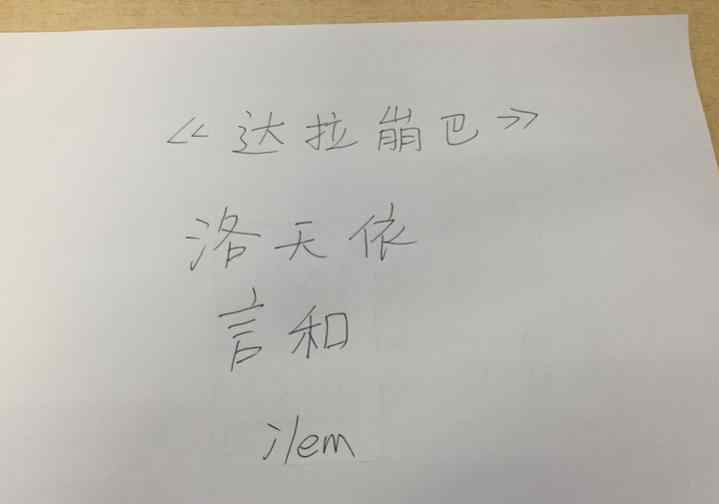 《达拉崩巴》
洛天依
言和
ilem